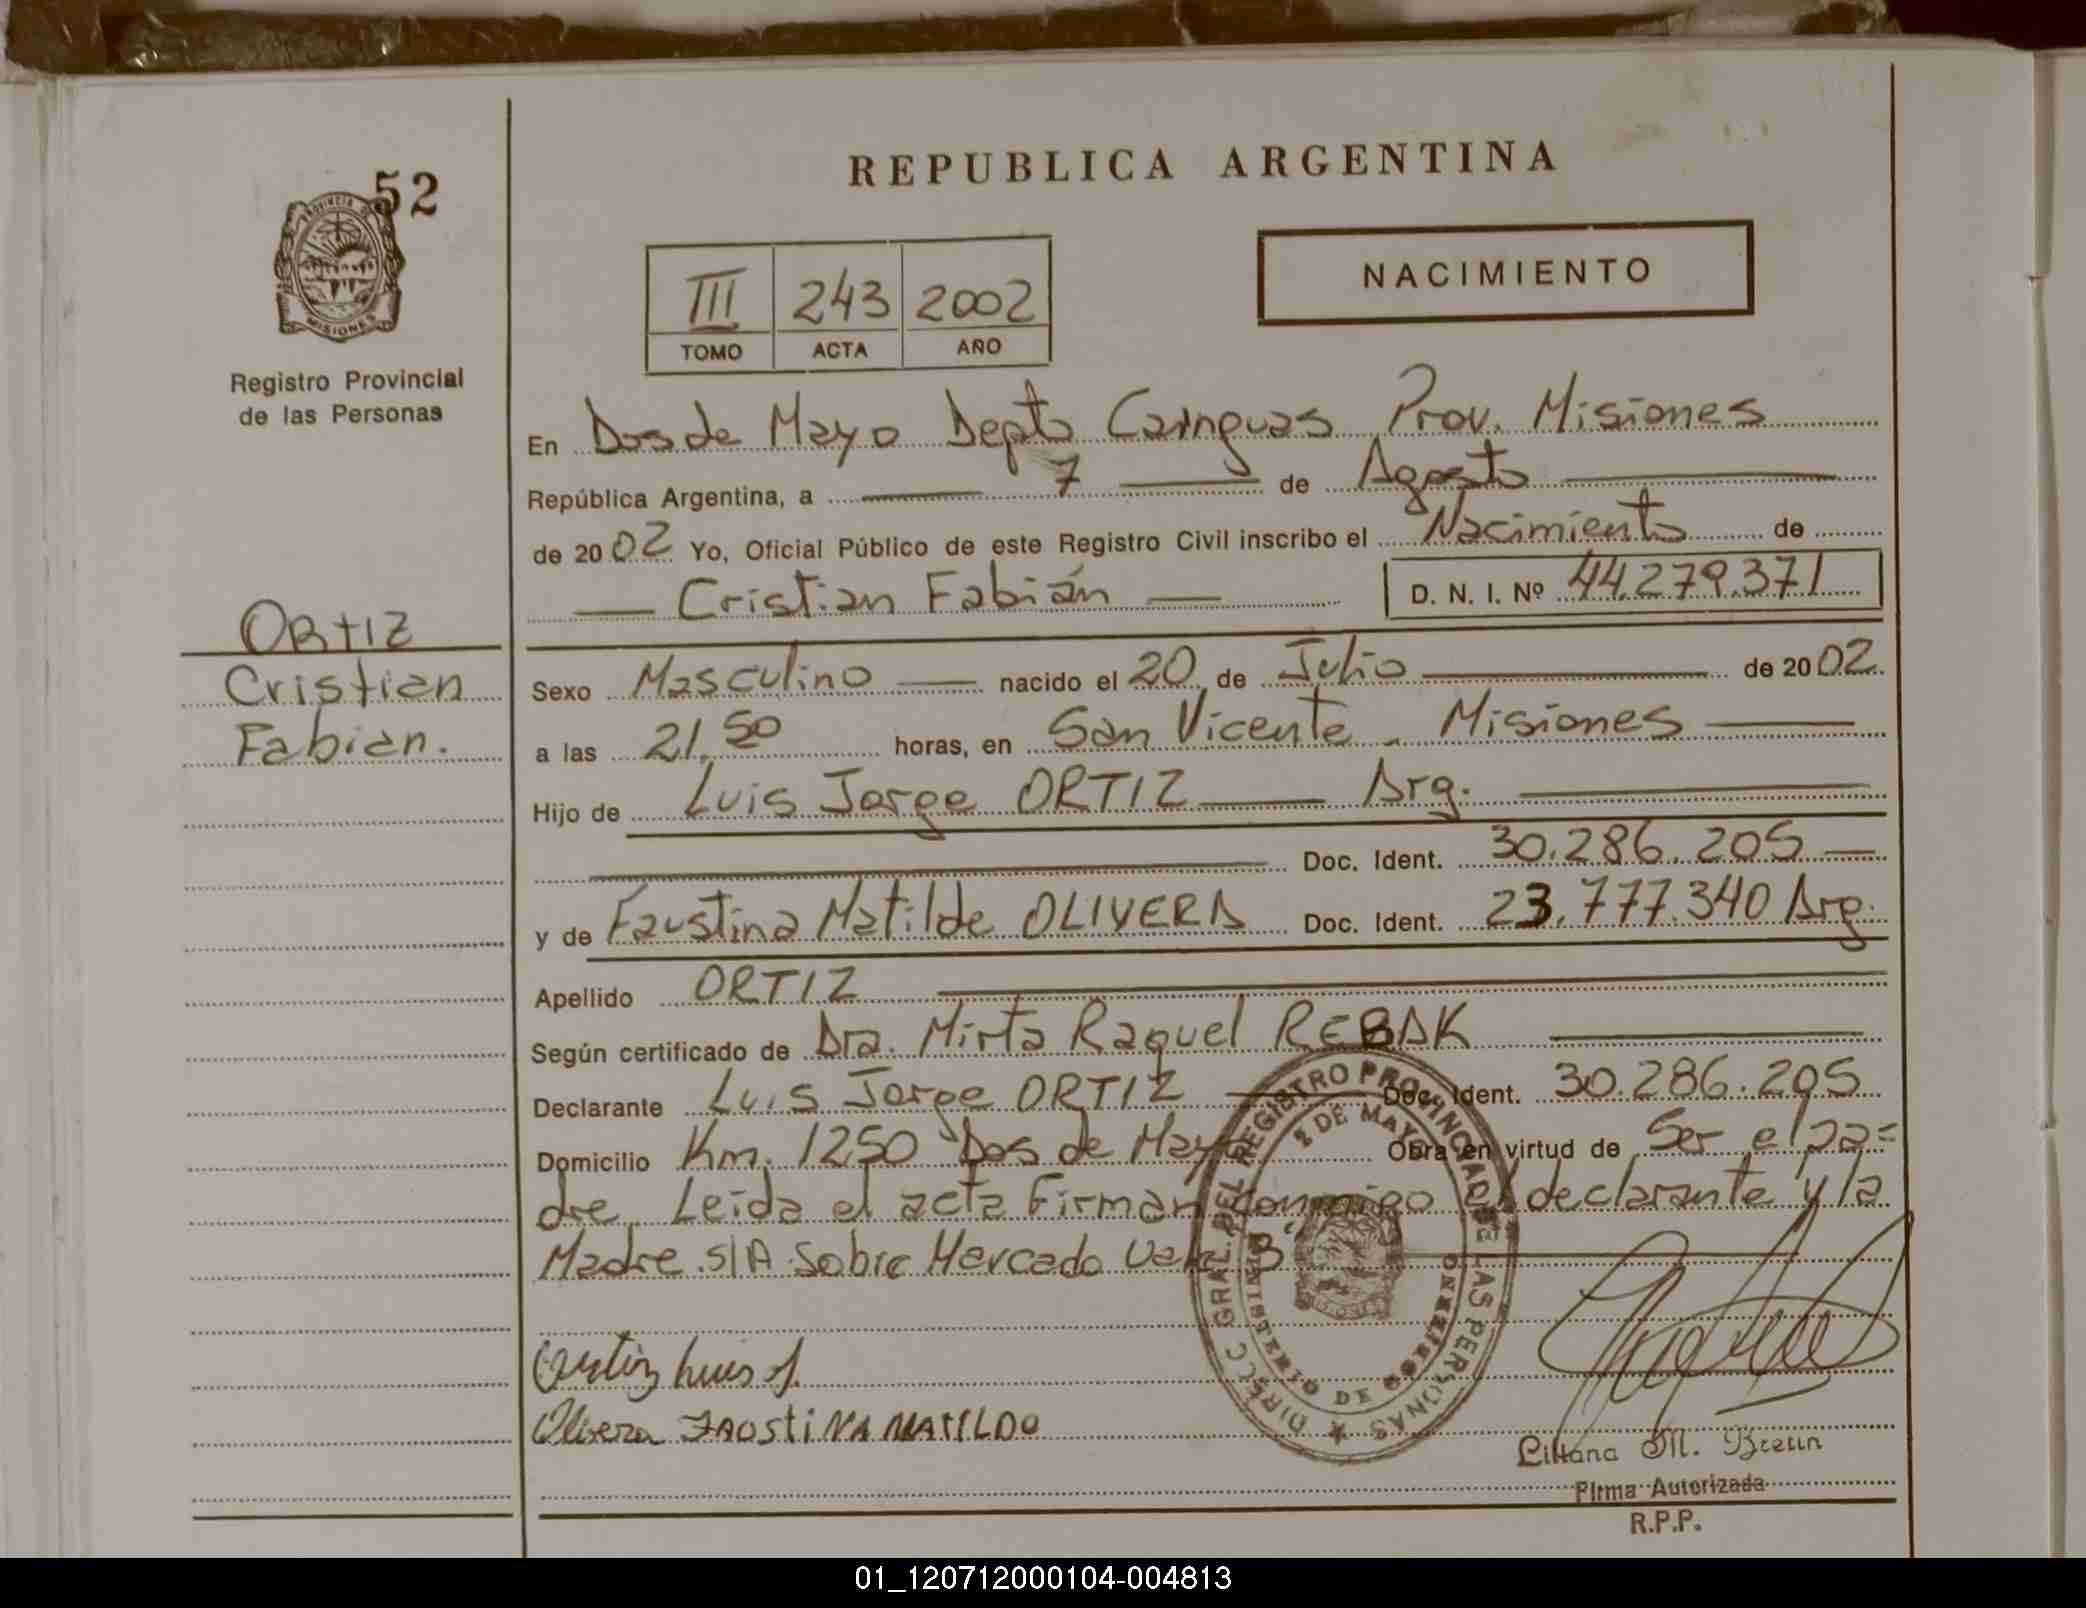 52
PROVINCIA DE
MISIONES
Registro Provincial
de las Personas
ORTIZ
Cristian
Fabian.
REPUBLICA ARGENTINA
III 243 2002
TOMO ACTA AÑO
NACIMIENTO
En Dos de Mayo Depto Cainguas Prov. Misiones
República Argentina, a 7 de Agosto
de 2002 Yo, Oficial Público de este Registro Civil inscribo el Nacimiento de
Cristian Fabián D. N. I. Nº 44.279.371
Sexo Masculino nacido el 20 de Julio de 2002
a las 21,50 horas, en San Vicente - Misiones
Hijo de Luis Jorge ORTIZ Arg.
Doc. Ident. 30.286.205
y de Faustina Matilde OLIVERA Doc. Ident. 23.777.340 Arg.
Apellido ORTIZ
Según certificado de Dra. Mirta Raquel REBAK
Declarante Luis Jorge ORTIZ Doc. Ident. 30.286.205
Domicilio Km. 1250 Dos de Mayo Obra en virtud de Ser el pa=
dre. Leida el acta Firman conmigo el declarante y la
Madre. S/A Sobre Marcado Vale 3
DIRECC GRAL DEL REGISTRO PROVINCIAL DE LAS PERSONAS
2 DE MAYO
MINISTERIO DE GOBIERNO
Ortiz Luis J.
Olivera FAOSTiNA MATILDO
Liliana M. Bretin
Firma Autorizada
R.P.P.
01_120712000104-004813